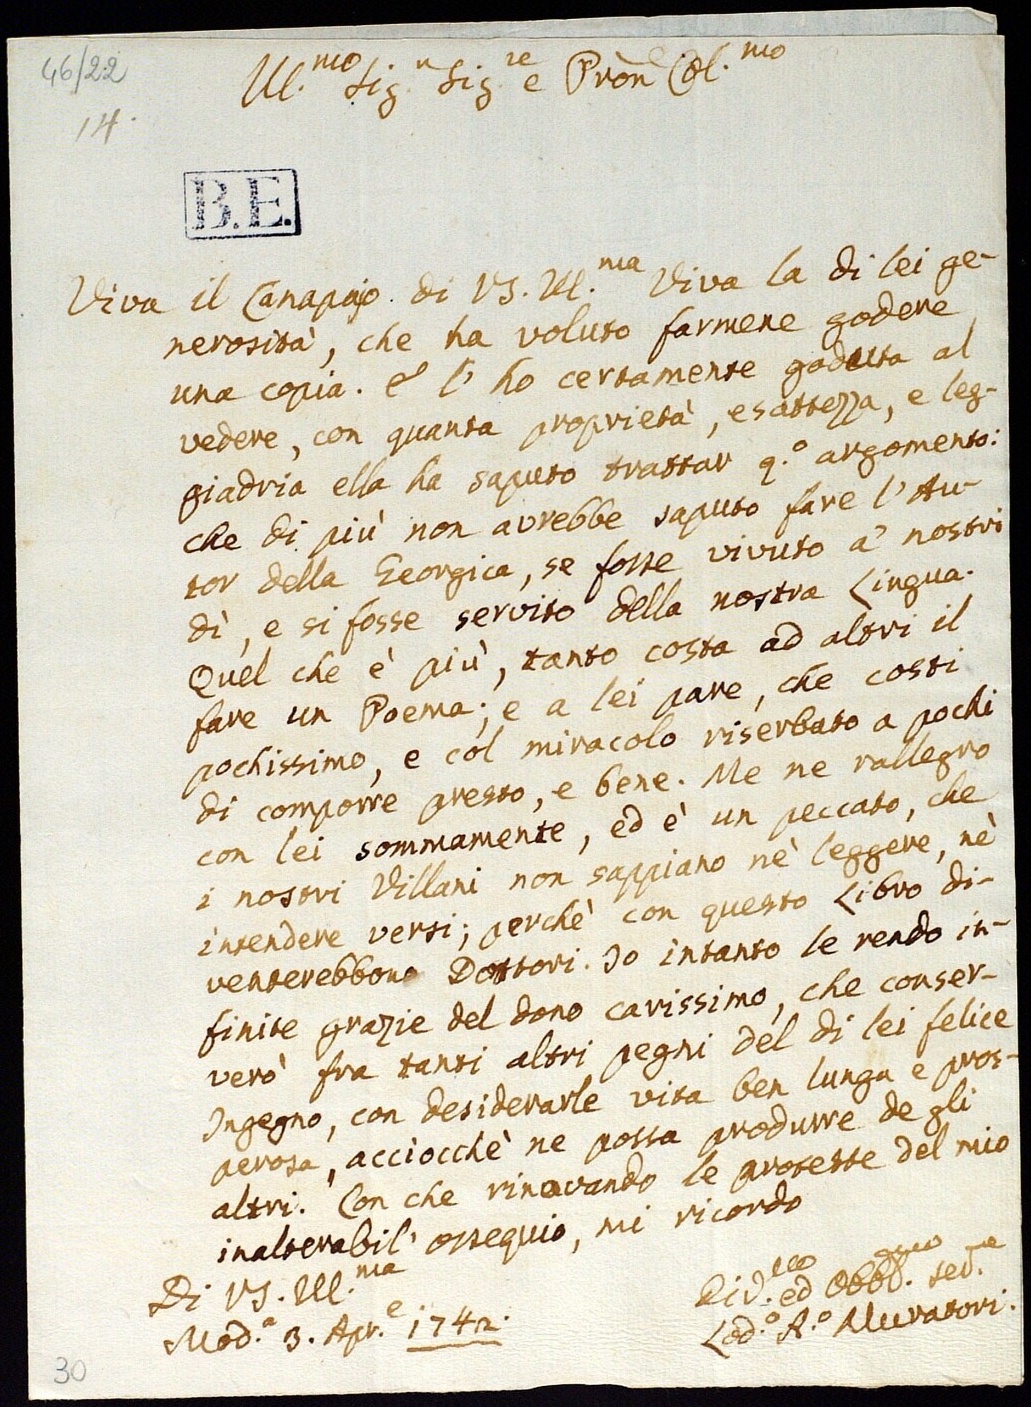 46/22
14.
Ill.mo Sig.r Sig.re e Pròn Col.mo
B.E.
Viva il Canapajo di VS. Ill.ma Viva la di lei ge-
nerosità, che ha voluto farmene godere
una copia. E l' ho certamente goduta al
vedere, con quanta proprietà, esattezza, e leg-
giadria ella ha saputo trattar q.o argomento:
che di più non avrebbe saputo fare l'Au-
tor della Georgica, se fosse vivuto a' nostri
dì, e si fosse servito della nostra Lingua.
Quel che è più, tanto costa ad altri il
fare un Poema; e a lei pare, che costi
pochissimo, e col miracolo riserbato a pochi
di comporre presto, e bene. Me ne rallegro
con lei sommamente, ed è un peccato, che
i nostri Villani non sappiano nè leggere, nè
intendere versi; perchè con questo Libro di-
venterebbono Dottori. Io intanto le rendo in-
finite grazie del dono carissimo, che conser-
verò fra tanti altri pegni del di lei felice
Ingegno, con desiderarle vita ben lunga e pros-
perosa, acciocchè ne possa produrre de gli
altri. Con che rinovando le proteste del mio
inalterabil' ossequio, mi ricordo
Di VS. Ill.ma
Mod.a 3. Apr.e 1742.
Div.mo ed Obbl.mo Ser.re
Lod.o A.o Muratori.
30